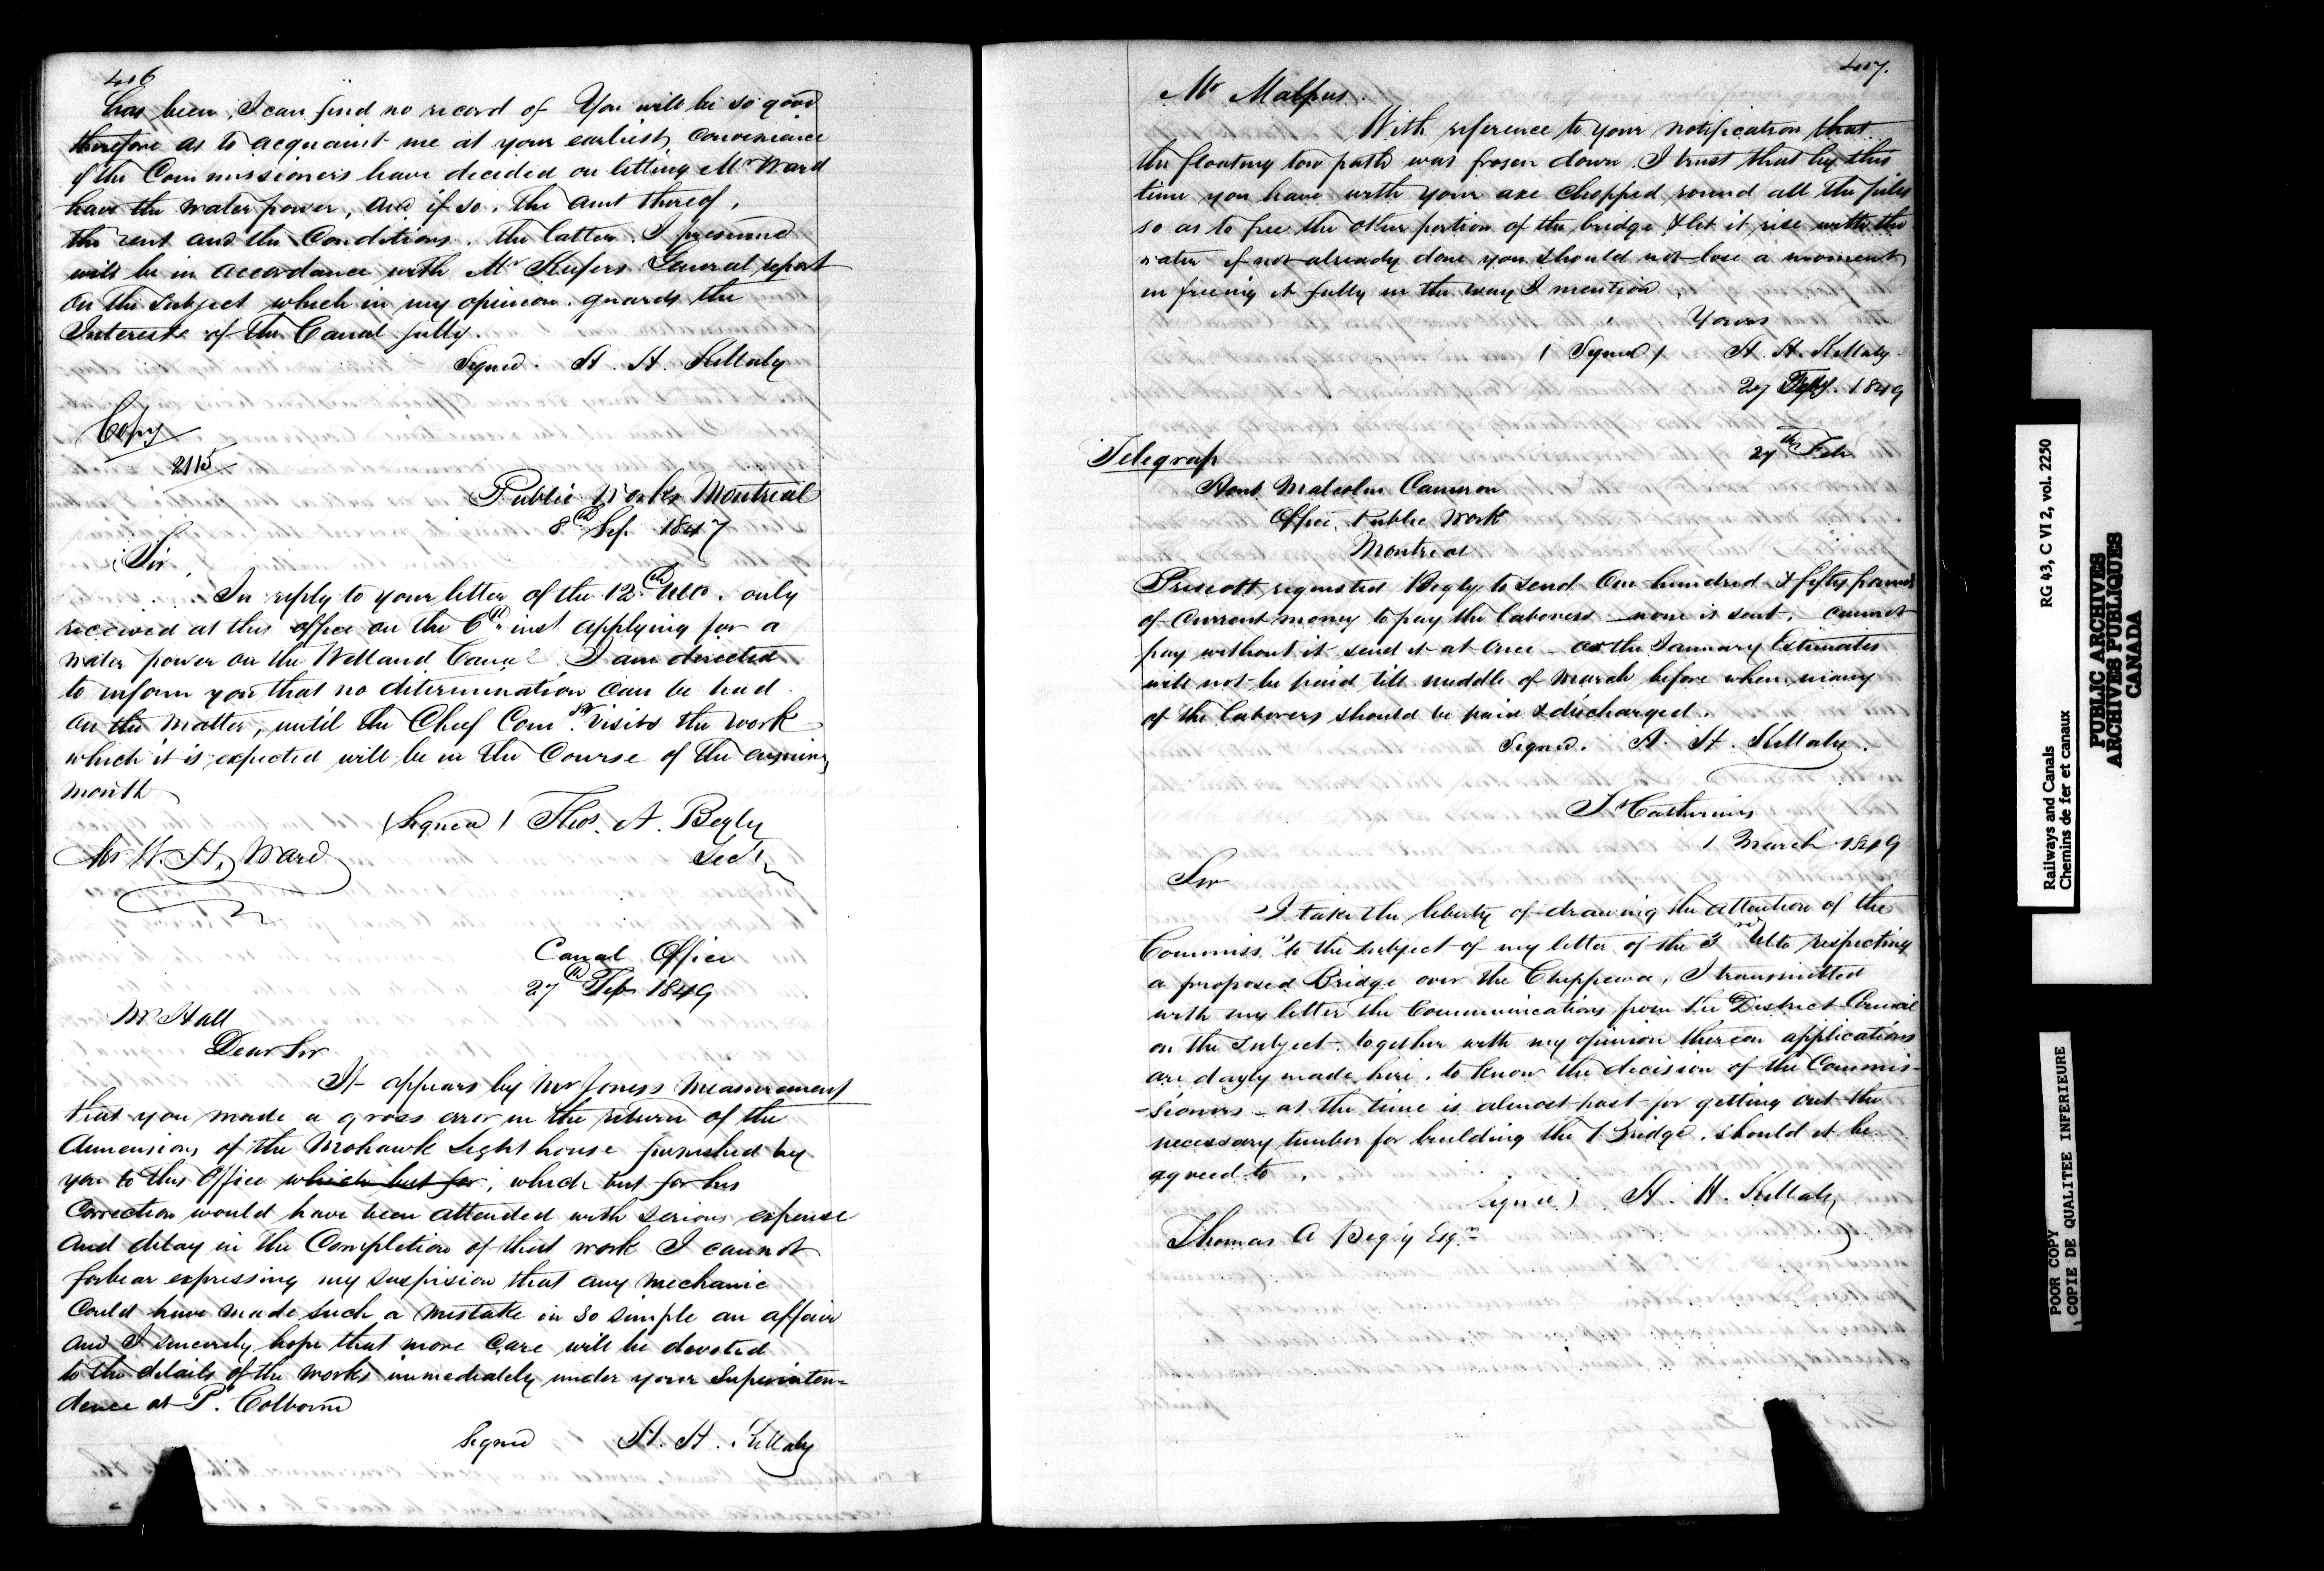 406
has been, I can find no record of You will be so good
therefore as to acquaint me at your earliest convenience
if the Commissioners have decided on letting Mr Ward
have the water power, and if so, the amt thereof,
the rent and the Conditions. The latter I presume
will be in accordance with Mr Keefers General report
on the subject which in my opinion guards the
Interests of the Canal fully.
Signed. H. H. Killaly
Copy
2115
Public Works Montreal
8th Sep. 1847
Sir
In reply to your letter of the 12th ulto. only
received at this office on the 6th inst applying for a
water power on the Welland Canal I am directed
to inform you that no determination can be had
on the matter, until the Chief Comr visits the work
which it is expected will be in the Course of the ensuing
month
(Signed) Thos. A. Begly
Secy
Mr W. H. Ward
Canal Office
27th Feb 1849
Mr Hall
Dear Sir
It appears by Mr Jones's measurement
that you made a gross error in the return of the
dimensions of the Mohawk Light house furnished by
you to this Office which but for, which but for his
Correction would have been attended with serious expense
and delay in the Completion of that work I cannot
forbear expressing my suspision that any mechanic
Could have made such a mistake in so simple an affair
and I sincerely hope that more Care will be devoted
to the details of the works immediately under your Superinten=
dence at Pt. Colborne
Signed H. H. Killaly
407.
Mr Malpus.
With reference to your notification that
the floating tow path was frozen down I trust that by this
time you have with your axe chopped round all the piles
so as to free the other portion of the bridge & let it rise with the
water if not already done you should not lose a moment
in freeing it fully in the way I mention
Yours
(Signed) H. H. Killaly.
27 Feby. 1849
Telegraph
27th Feb
Honb Malcolm Cameron
Office Public Work
Montreal
Prescott requested Begly to send One hundred & fifty pounds
of current money to pay the laborers none is sent. cannot
pay without it send it at once - as the January Estimates
will not be paid till middle of March before when many
of the laborers should be paid & discharged.
Signed. H. H. Killaly.
St Catherines
1 March 1849
Sir
I take the liberty of drawing the attention of the
Commissrs to the subject of my letter of the 3rd ulto respecting
a proposed Bridge over the Chippewa, I transmitted
with my letter the Communications from the District Council
on the subject, together with my opinion thereon applications
are dayly made here, to know the decision of the Commis-
-sioners - as the time is almost past for getting out the
necessary timber for building the Bridge, should it be
agreed to.
Signed) H. H. Killaly
Thomas A Begly Esqre
Railways and Canals RG 43, C VI 2, vol. 2250
Chemins de fer et canaux
PUBLIC ARCHIVES
ARCHIVES PUBLIQUES
CANADA
POOR COPY
COPIE DE QUALITEE INFERIEURE